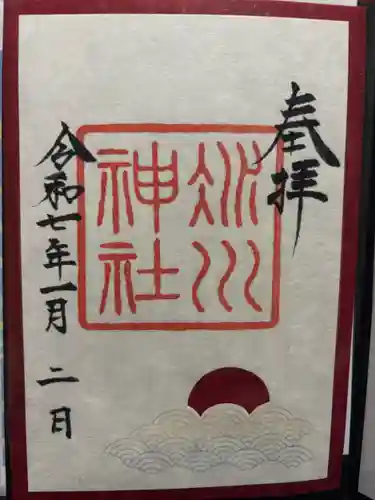 奉拝
氷川
神社
令和七年一月二日